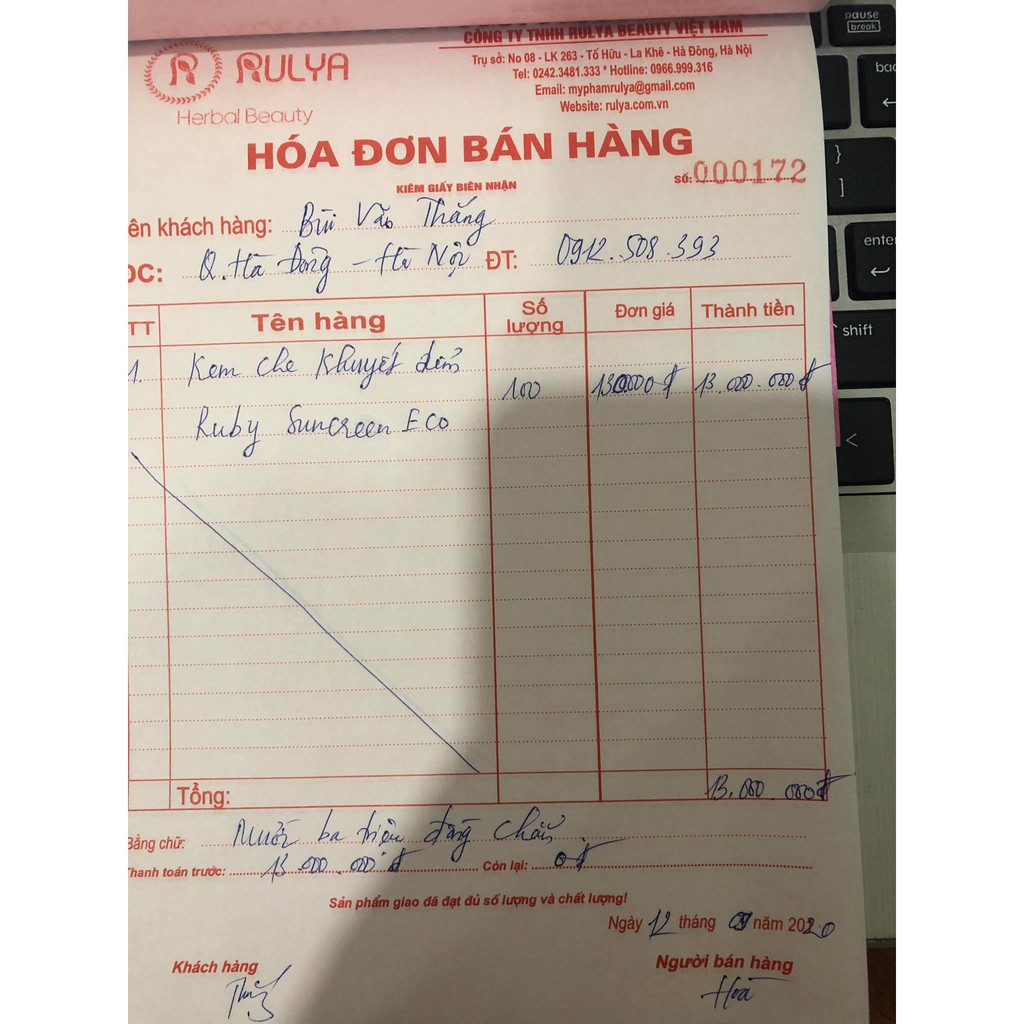 RULYA
Herbal Beauty
CÔNG TY TNHH RULYA BEAUTY VIỆT NAM
Trụ sở: No 08 - LK 263 - Tố Hữu - La Khê - Hà Đông, Hà Nội
Tel: 0242.3481.333 * Hotline: 0966.999.316
Email: myphamrulya@gmail.com
Website: rulya.com.vn
HÓA ĐƠN BÁN HÀNG
KIÊM GIẤY BIÊN NHẬN
Số: 000172
ên khách hàng: Bùi Văn Thắng
ĐC: Q. Hà Đông - Hà Nội ĐT: 0912.508.393
TT Tên hàng Số lượng Đơn giá Thành tiền
1. Kem che khuyết điểm
100 130000đ 13.000.000đ
Ruby Suncreen Eco
Tổng: 13.000.000đ
Bằng chữ: Mười ba triệu đồng chẵn
Thanh toán trước: 13.000.000đ Còn lại: 0đ
Sản phẩm giao đã đạt đủ số lượng và chất lượng!
Ngày 12 tháng năm 2020
Khách hàng Người bán hàng
Hoà
pause
break
bac
}
]
enter
shift
<